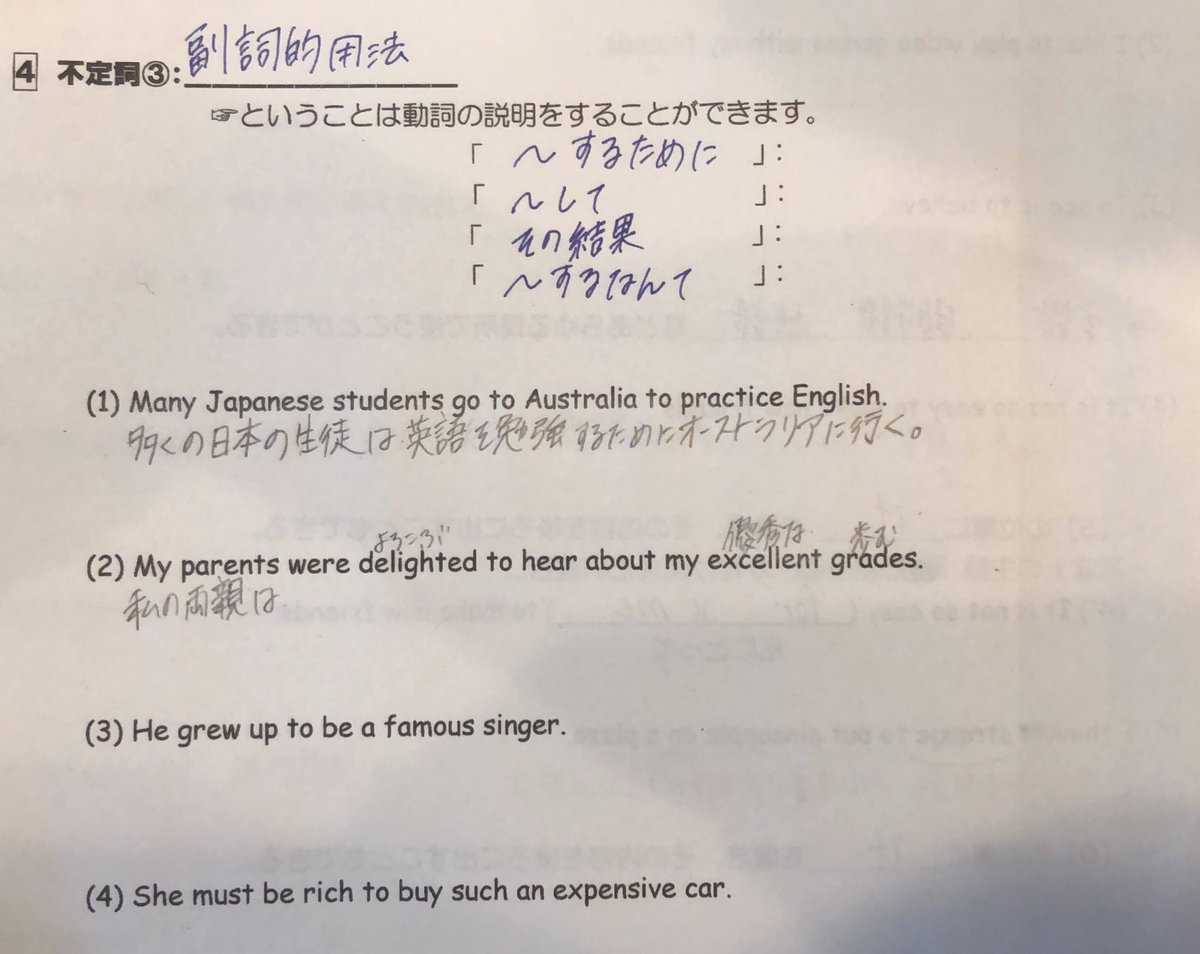 4 不定詞③:副詞的用法
☞ということは動詞の説明をすることができます。
「 ～するために 」:
「 ～して 」:
「 その結果 」:
「 ～するなんて 」:
(1) Many Japanese students go to Australia to practice English.
多くの日本の生徒は英語を勉強するためにオーストラリアに行く。
よろこぶ 優秀な 歩む
(2) My parents were delighted to hear about my excellent grades.
私の両親は
(3) He grew up to be a famous singer.
(4) She must be rich to buy such an expensive car.